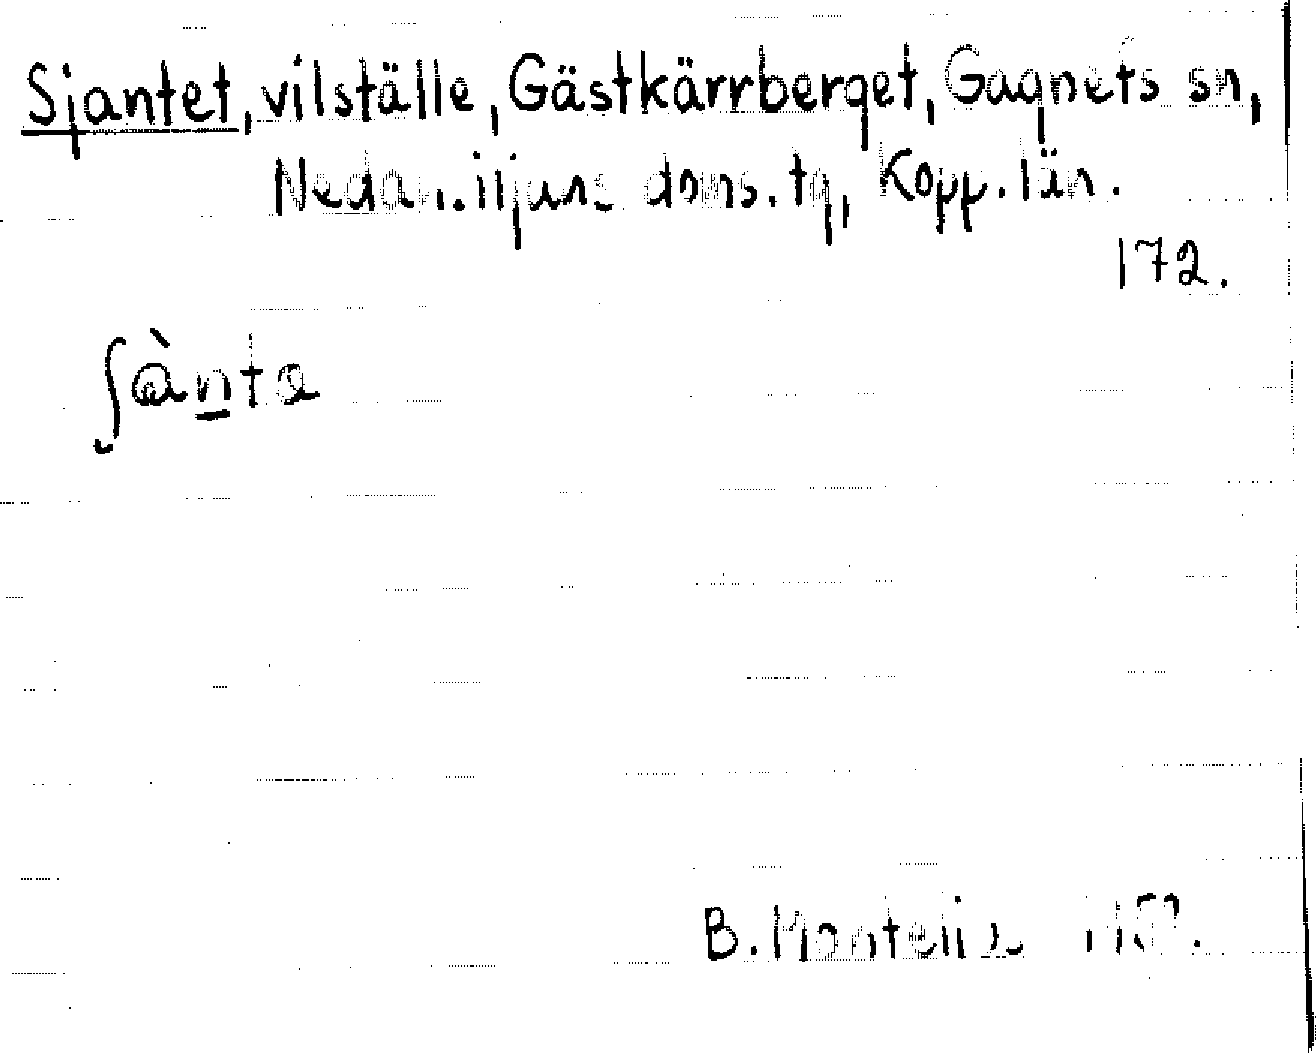 Sjantet, vilställe, Gästkärrberget, Gagnefs sn,
Nedansiljans doms. tg, Kopp. län.
172.
ʃànta
B. Montelius